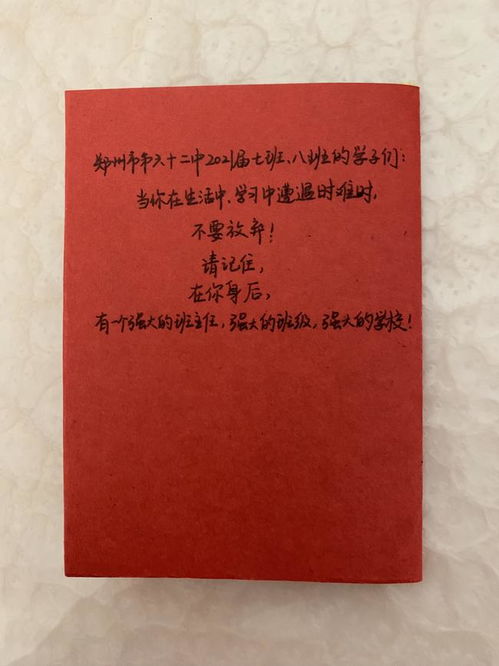 郑州市第六十二中2021届七班、八班的学子们：
当你在生活中、学习中遭遇时难时，
不要放弃！
请记住，
在你身后，
有一个强大的班主任，强大的班级，强大的学校！